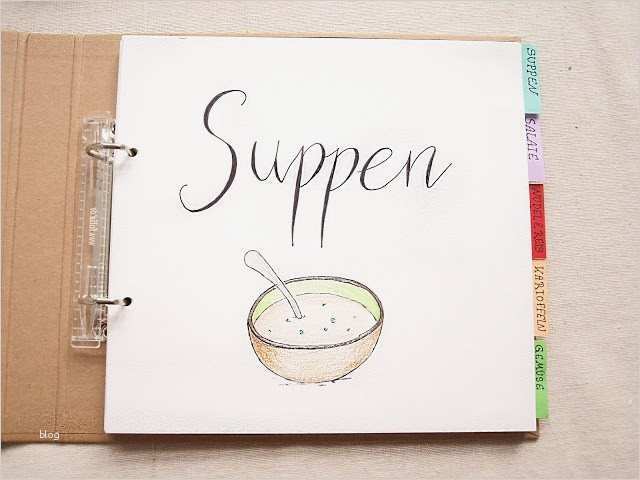 Suppen
SUPPEN
SALATE
NUDEL & REIS
KARTOFFELN
GEMÜSE
blog